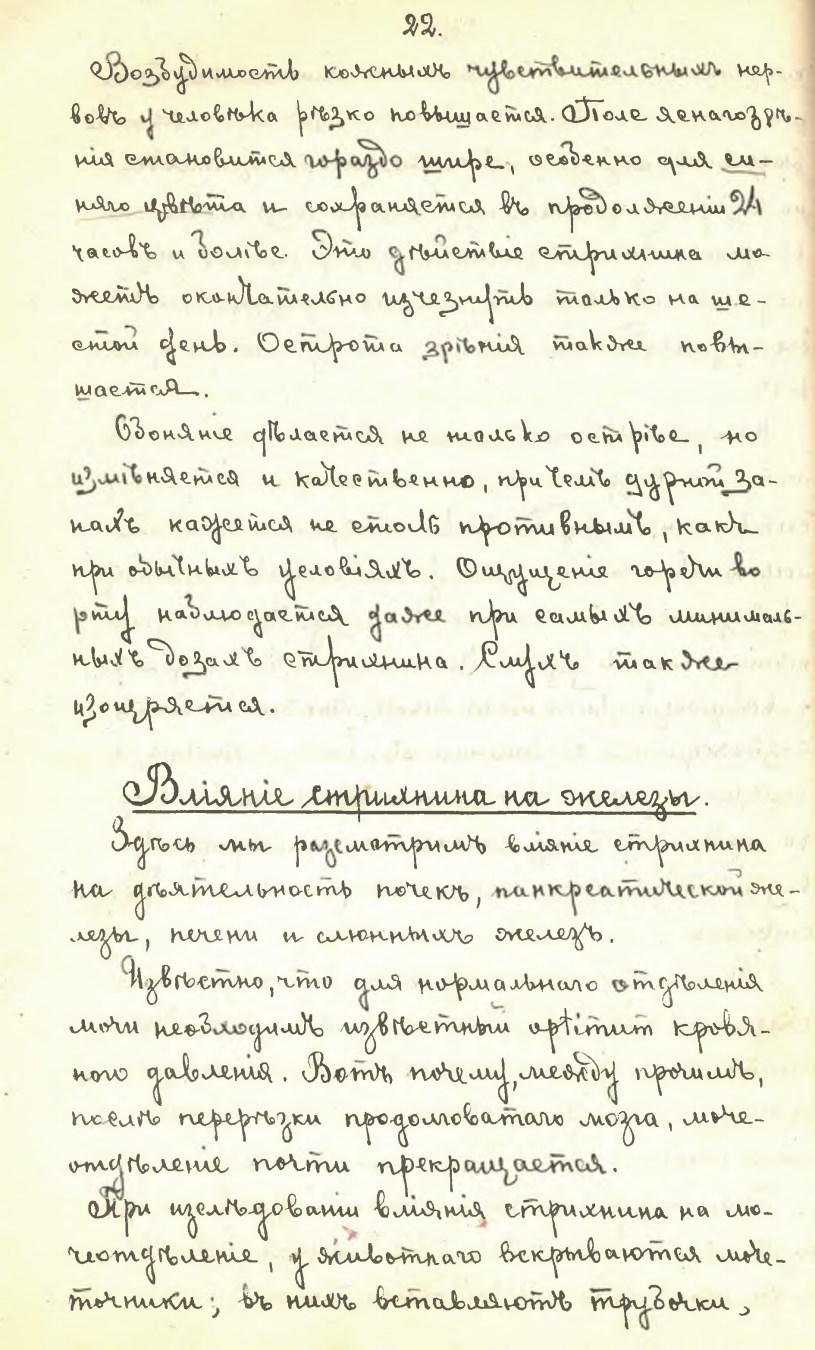 22.
Возбудимость кожныхъ чувствительныхъ нер-
вовъ у человѣка рѣзко повышается. Поле яснагозрѣ-
нія становится гораздо шире, особенно для си-
няго цвѣта и сохраняется въ продолженіи 24
часовъ и болѣе. Это дѣйствіе стрихнина мо-
жетъ окончательно изчезнуть только на ше-
стой день. Острота зрѣнія также повы-
шается.
Обоняніе дѣлается не только острѣе, но
измѣняется и качественно, причемъ дурной за-
пахъ кажется не столь противнымъ, какъ
при обычныхъ условіяхъ. Ощущеніе горечи во
рту наблюдается даже при самыхъ минималь-
ныхъ дозахъ стрихнина. Слухъ также
изощряется.
Вліяніе стрихнина на железы.
Здѣсь мы разсмотримъ вліяніе стрихнина
на дѣятельность почекъ, панкреатической же-
лезы, печени и слюнныхъ железъ.
Извѣстно, что для нормальнаго отдѣленія
мочи необходимъ извѣстный кровя-
ного давленія. Вотъ почему, между прочимъ,
послѣ перерѣзки продолговатаго мозга, моче-
отдѣленіе почти прекращается.
При изслѣдованіи вліянія стрихнина на мо-
чеотдѣленіе, у животнаго вскрываются моче-
точники; въ нихъ вставляютъ трубочки,